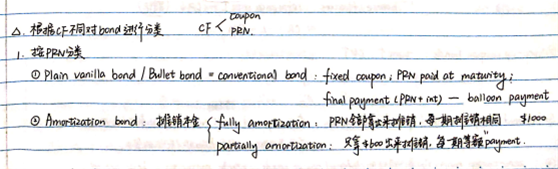 △. 根据CF不同对bond进行分类 CF < coupon
PRN.
1. 按PRN分类
① Plain vanilla bond / Bullet bond = conventional bond : fixed coupon ; PRN paid at maturity ;
final payment (PRN + int) — balloon payment
② Amortization bond : 摊销本金 { fully amortization : PRN全部拿出来摊销, 每一期摊销相同 $1000
partially amortization : 只拿$600出来摊销, 每一期等额payment.